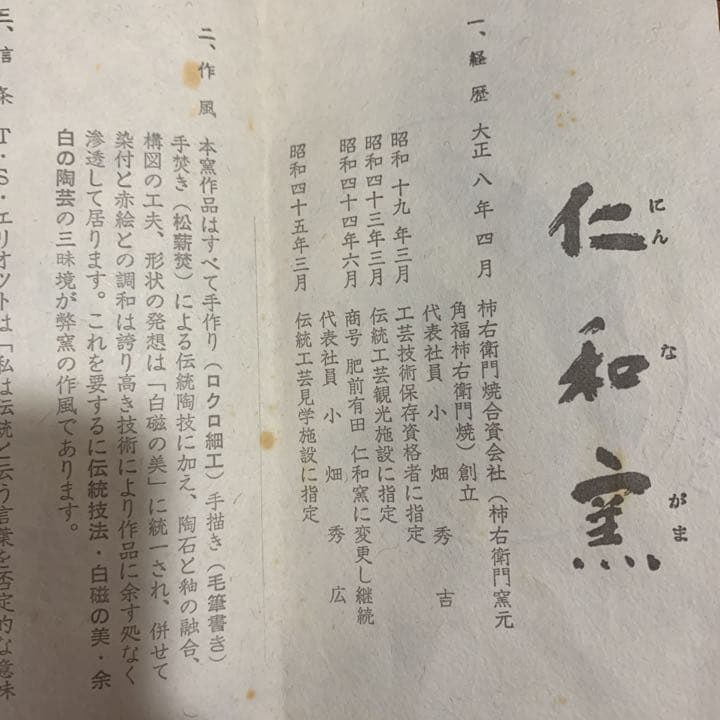 仁和窯
にんながま
一、経歴 大正 八年四月 柿右衛門焼合資会社（柿右衛門窯元
角福柿右衛門焼）創立
代表社員 小畑秀吉
昭和 十九 年三月 工芸技術保存資格者に指定
昭和四十三年三月 伝統工芸観光施設に指定
昭和四十四年六月 商号 肥前有田 仁和窯に変更し継続
代表社員 小畑秀広
昭和四十五年三月 伝統工芸見学施設に指定
二、作風 本窯作品はすべて手作り（ロクロ細工）手描き（毛筆書き）
手焚き（松薪焚）による伝統陶技に加え、陶石と釉の融合、
構図の工夫、形状の発想は「白磁の美」に統一され、併せて
染付と赤絵との調和は誇り高き技術により作品に余す処なく
滲透して居ります。これを要するに伝統技法・白磁の美・余
白の陶芸の三昧境が弊窯の作風であります。
三、信条 T・S・エリオットは「私は伝統と云う言葉を否定的な意味